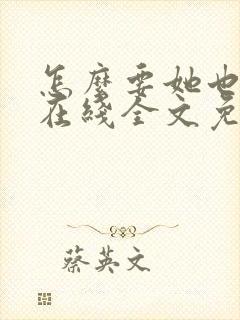 怎麽要她也
在綫全文免
蔡英文